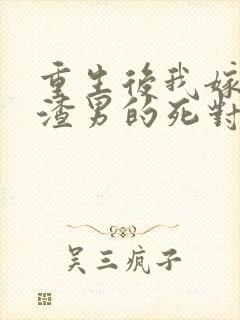 重生後我嫁
渣男的死對
吳三瘋子